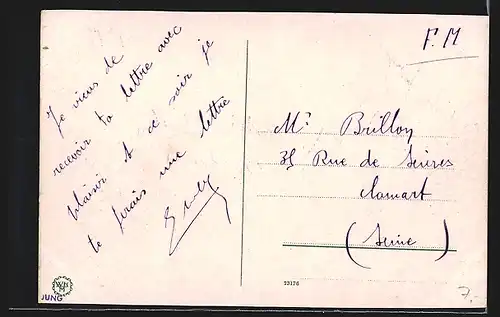 Je viens de
recevoir ta lettre avec
plaisir & ce soir je
te ferais une lettre
F. M
Mr Brillon
35 Rue de Sèvres
Clamart
(Seine)
WB
N
JUNG
23176
7.